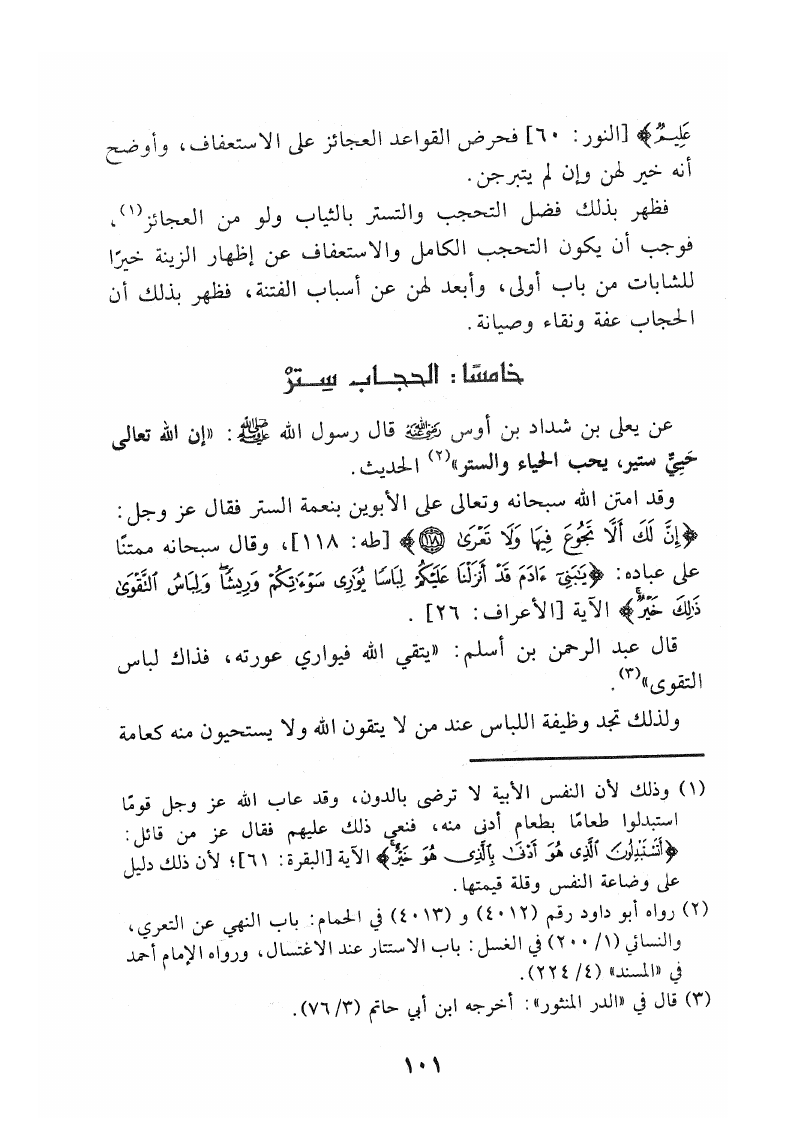 عَلِيمٌ﴾ [النور: ٦٠] فحرض القواعد العجائز على الاستعفاف، وأوضح
أنه خير لهن وإن لم يتبرجن.
فظهر بذلك فضل التحجب والتستر بالثياب ولو من العجائز(١)،
فوجب أن يكون التحجب الكامل والاستعفاف عن إظهار الزينة خيرًا
للشابات من باب أولى، وأبعد لهن عن أسباب الفتنة، فظهر بذلك أن
الحجاب عفة ونقاء وصيانة.
خامسًا: الحجـاب سِـتـرْ
عن يعلى بن شداد بن أوس رضي الله عنه قال رسول الله ﷺ: «إن الله تعالى
حَيِيٌّ ستير، يحب الحياء والستر»(٢) الحديث.
وقد امتن الله سبحانه وتعالى على الأبوين بنعمة الستر فقال عز وجل:
﴿إِنَّ لَكَ أَلَّا تَجُوعَ فِيهَا وَلَا تَعْرَىٰ ١١٨﴾ [طه: ١١٨]، وقال سبحانه ممتنًا
على عباده: ﴿يَٰبَنِىٓ ءَادَمَ قَدْ أَنزَلْنَا عَلَيْكُمْ لِبَاسًا يُوَٰرِى سَوْءَٰتِكُمْ وَرِيشًا ۖ وَلِبَاسُ ٱلتَّقْوَىٰ
ذَٰلِكَ خَيْرٌ ۚ﴾ الآية [الأعراف: ٢٦] .
قال عبد الرحمن بن أسلم: «يتقي الله فيواري عورته، فذاك لباس
التقوى»(٣).
ولذلك تجد وظيفة اللباس عند من لا يتقون الله ولا يستحيون منه كعامة
(١) وذلك لأن النفس الأبية لا ترضى بالدون، وقد عاب الله عز وجل قومًا
استبدلوا طعامًا بطعام أدنى منه، فنعى ذلك عليهم فقال عز من قائل:
﴿أَتَسْتَبْدِلُونَ ٱلَّذِى هُوَ أَدْنَىٰ بِٱلَّذِى هُوَ خَيْرٌ ۚ﴾ الآية [البقرة: ٦١]؛ لأن ذلك دليل
على وضاعة النفس وقلة قيمتها.
(٢) رواه أبو داود رقم (٤٠١٢) و (٤٠١٣) في الحمام: باب النهي عن التعري،
والنسائي (١/ ٢٠٠) في الغسل: باب الاستتار عند الاغتسال، ورواه الإمام أحمد
في «المسند» (٤/ ٢٢٤).
(٣) قال في «الدر المنثور»: أخرجه ابن أبي حاتم (٣/ ٧٦).
١٠١